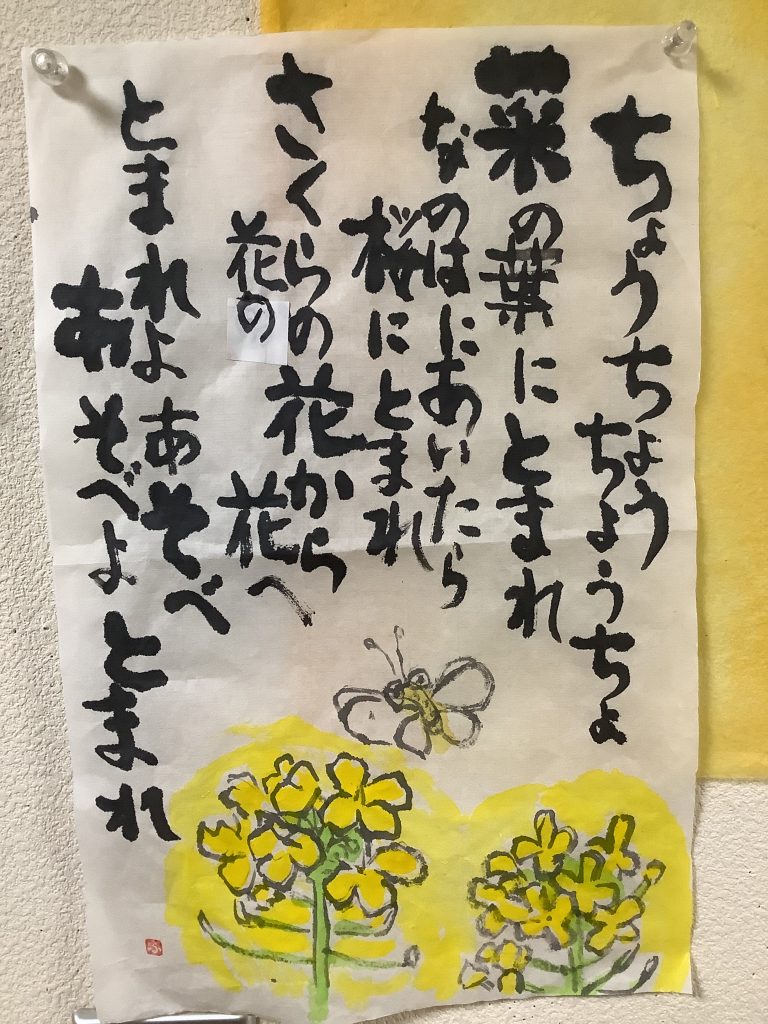 ちょうちょう
ちょうちょ
菜の葉にとまれ
なのはにあいたら
桜にとまれ
さくらの花から
花の
花へ
とまれよあそべ
あそべよとまれ
ふ